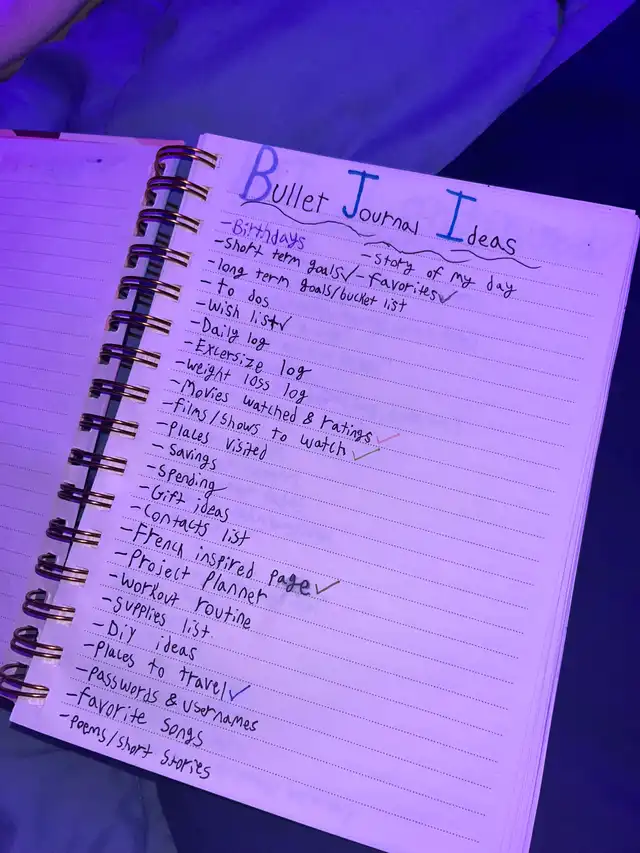 Bullet Journal Ideas
-Birthdays -Story of my day
-short term goals✓ -favorites✓
-long term goals/bucket list
-To dos
-Wish list✓
-Daily log
-Excersize log
-weight loss log
-Movies watched & ratings ✓
-films/shows to watch ✓
-Places visited
-Savings
-Spending
-Gift ideas
-Contacts list
-French inspired page ✓
-Project Planner
-Workout routine
-Supplies list
-Diy ideas
-Places to travel ✓
-passwords & usernames
-favorite songs
-poems/short stories